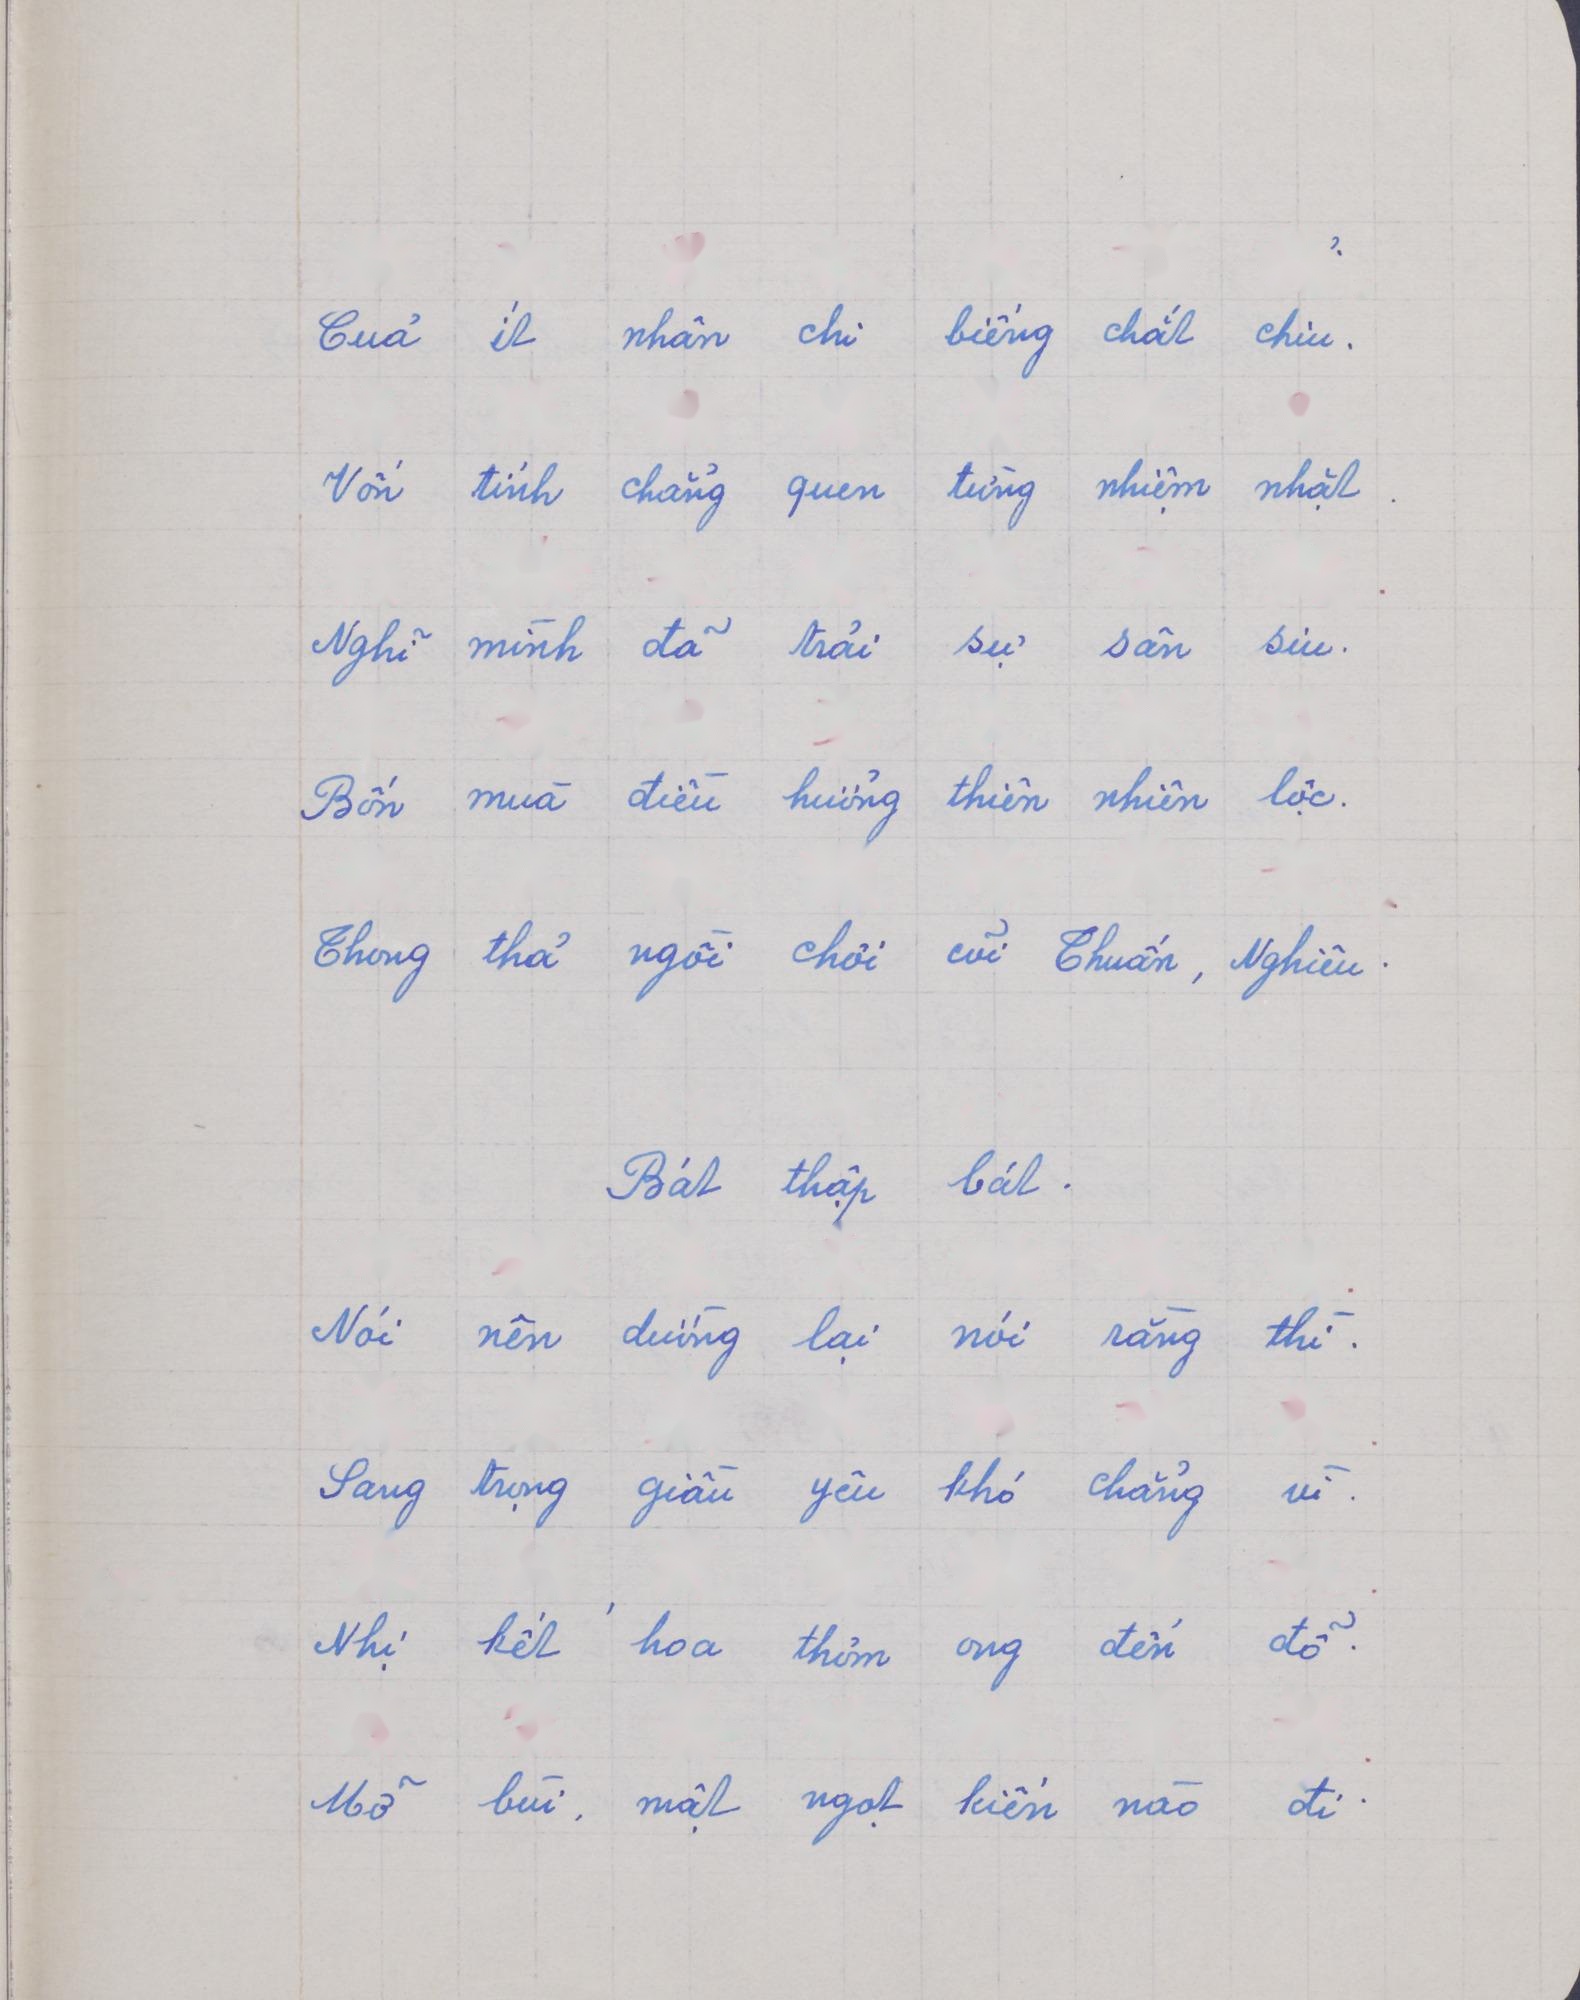 Của ít nhân chi biếng chắt chiu.
Vốn tính chẳng quen từng nhiệm nhặt.
Nghĩ mình đã trải sự sân siu.
Bốn mùa điều hưởng thiên nhiên lộc.
Thong thả ngồi chơi cõi Thuấn, Nghiêu.
Bát thập bát.
Nói nên dường lại nói rằng thì.
Sang trọng giầu yêu khó chẳng vì.
Nhị kết hoa thơm ong đến đỗ.
Mỡ bùi, mật ngọt kiến nào đi.